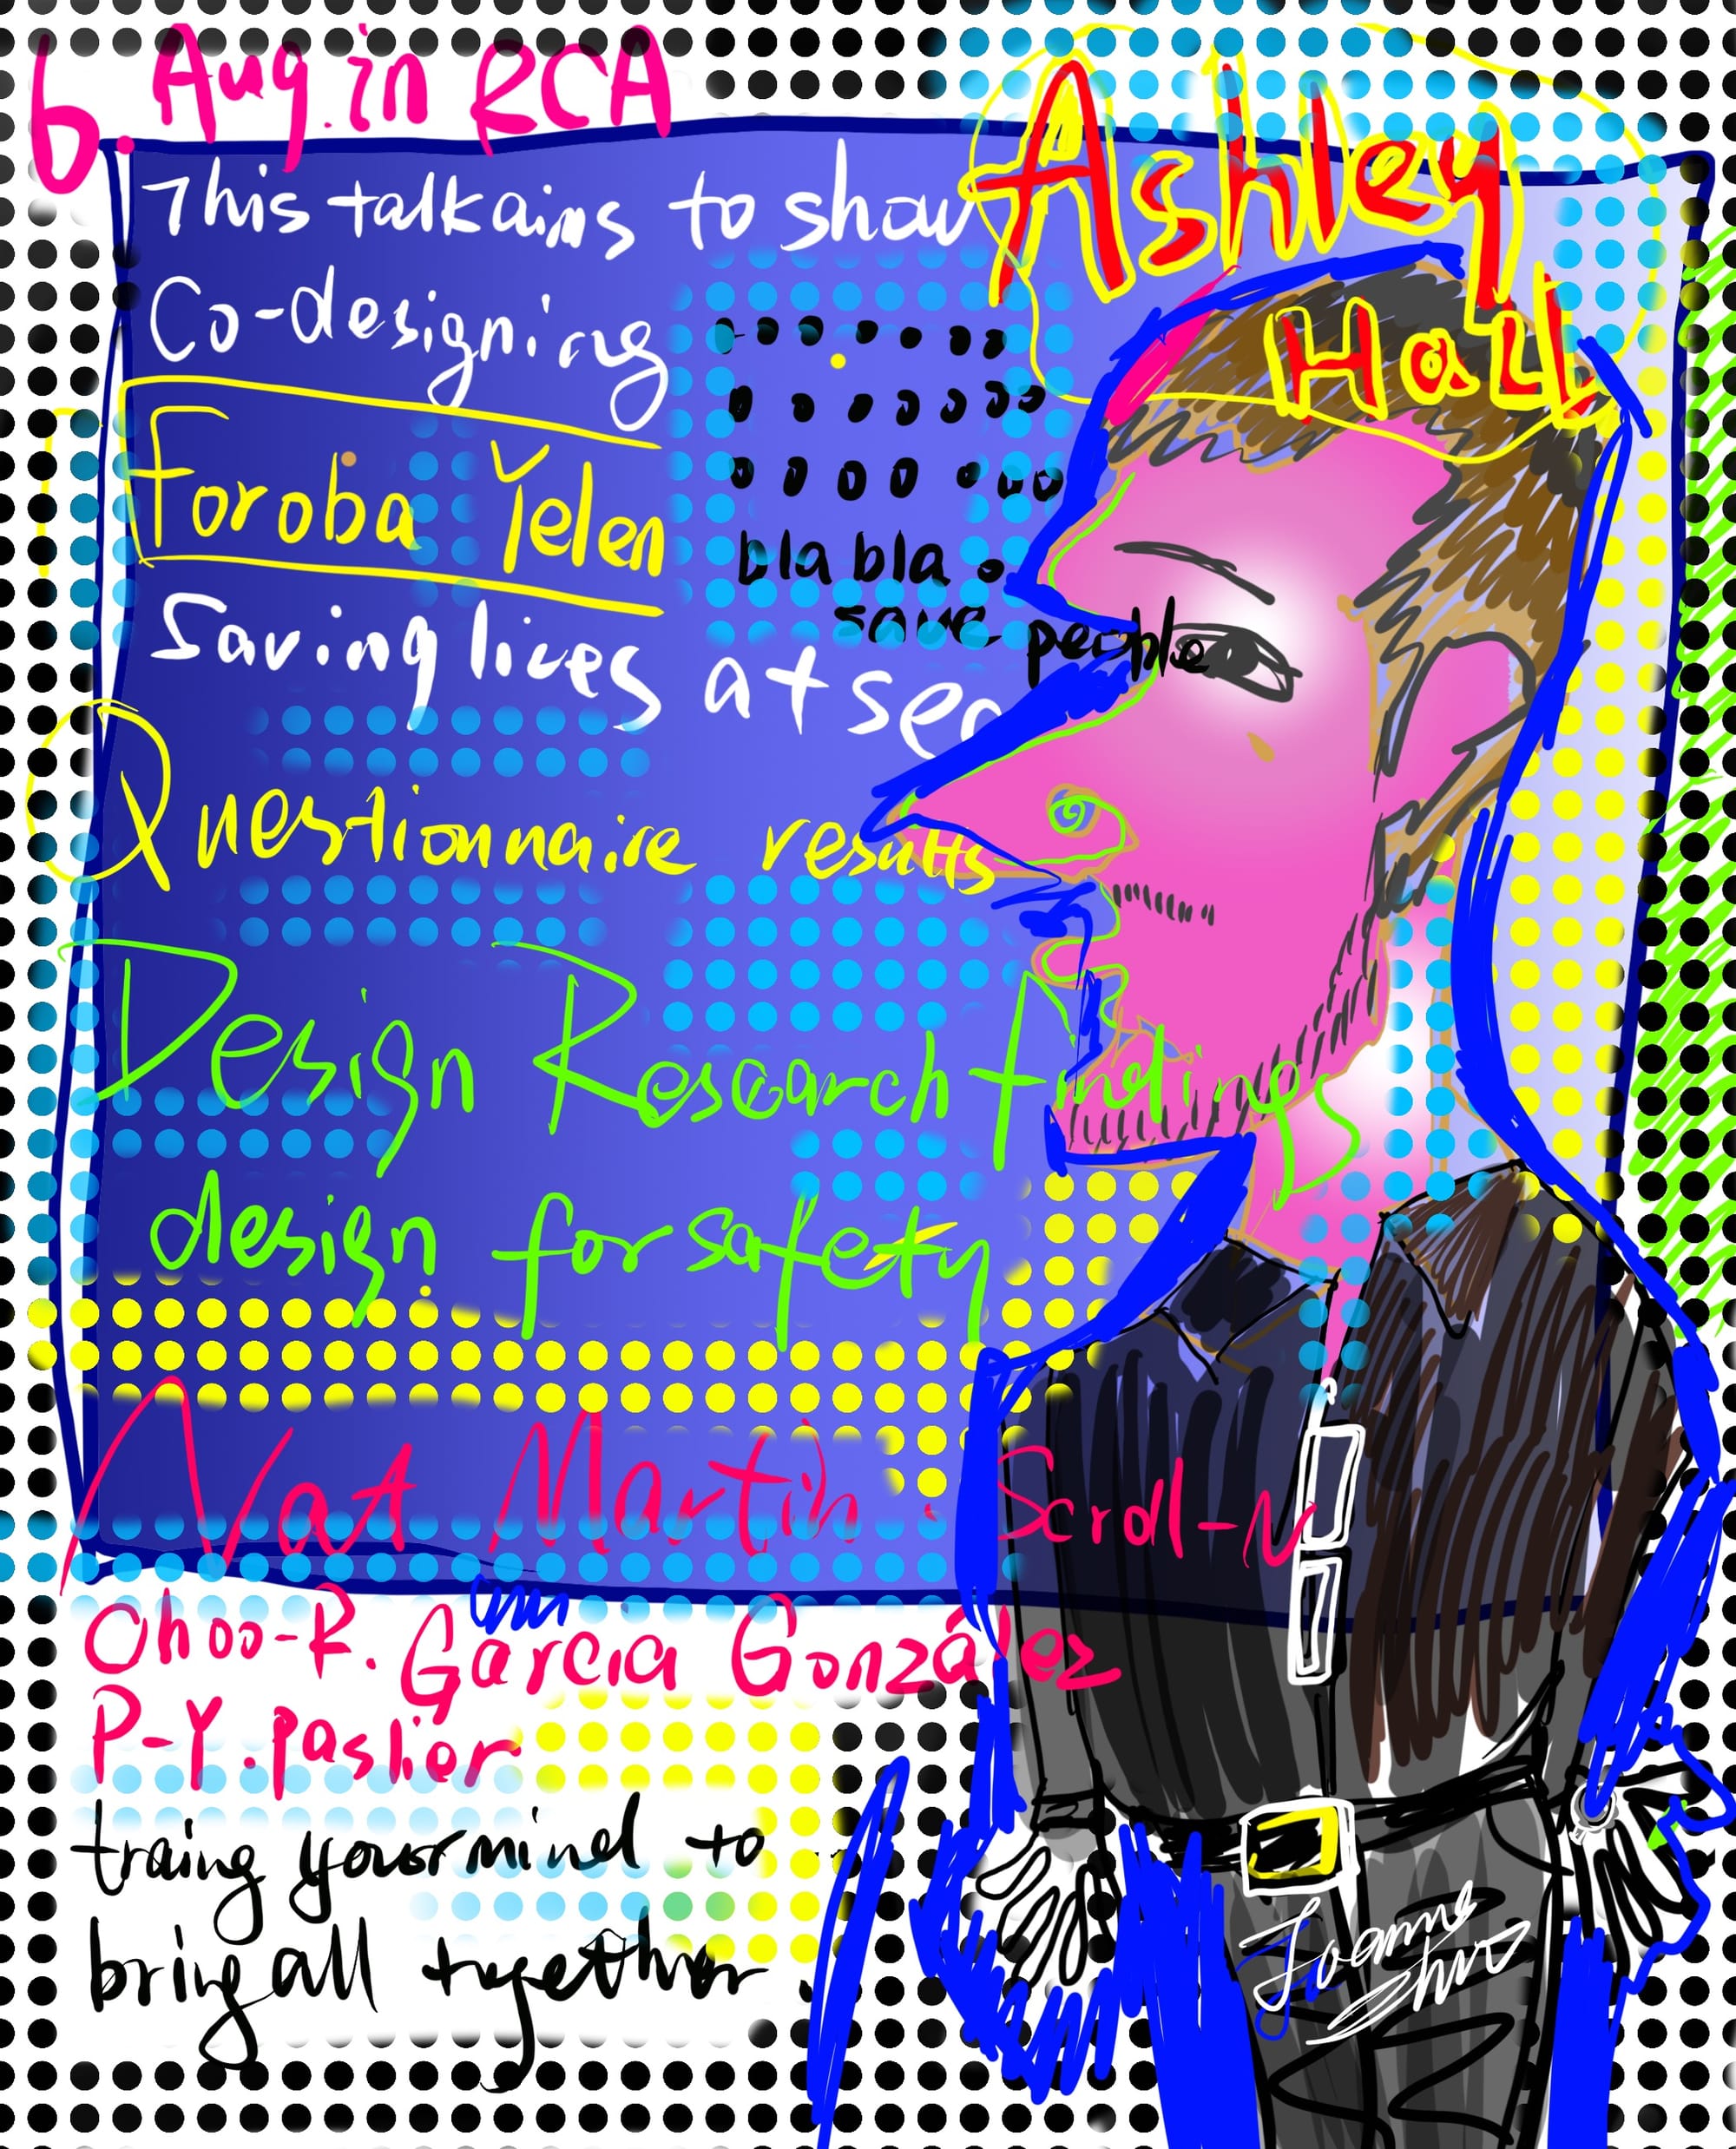 6. Aug. in RCA
Ashley
Hall
This talk aims to show
Co-designing
Foroba Yelen
bla bla
save people
Saving lives at sea
Questionnaire results
Design Research findings
design for safety
Nat Martin . Scroll-N
Choo-R. Garcia González
P-Y. paslier
traing your mind to
bring all together.
Joanne